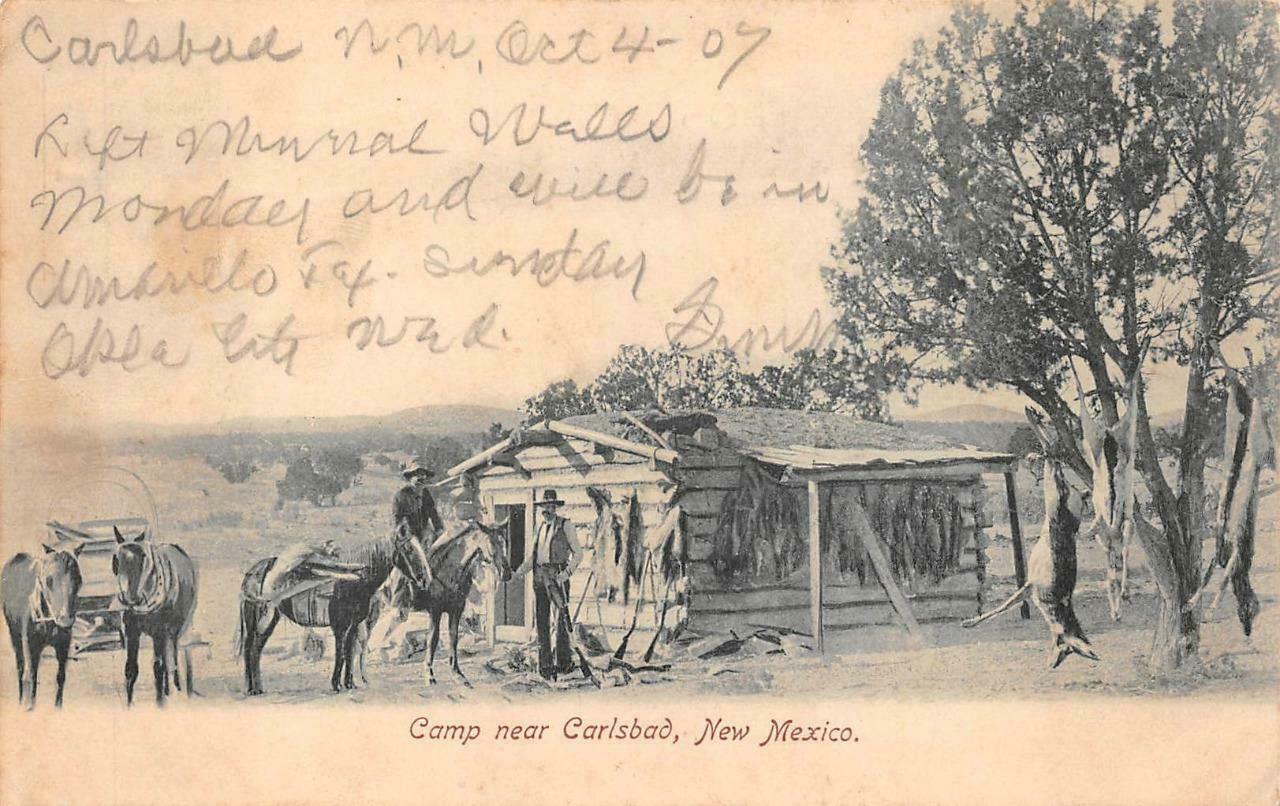 Carlsbad N.M. Oct 4-07
Left Mineral Wells
Monday and will be in
Amarillo Tex. Sunday
Okla City Wed.
Camp near Carlsbad, New Mexico.